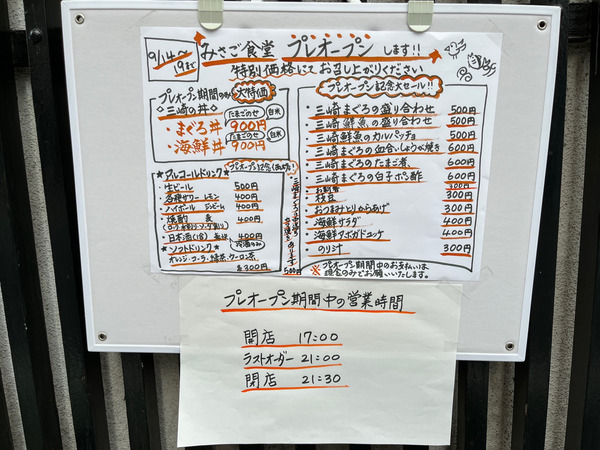 9/14〜
19まで
みさご食堂 プレオープンします!!
特別価格にてお召し上がりください
プレオープン期間のみ 大特価
◇三崎の丼◇
たまごのせ 白米
・まぐろ丼 900円
たまごのせ 白米
・海鮮丼 900円
★アルコールドリンク★
・生ビール 500円
・各種サワー レモン 400円
・ハイボール ジンビーム 400円
・焼酎 麦 400円
・日本酒(冷) 400円
★ソフトドリンク★
オレンジ・コーラ・緑茶・ウーロン茶
各300円
500円
プレオープン記念大セール!!
・三崎まぐろの盛り合わせ 500円
・三崎鮮魚の盛り合わせ 500円
・三崎鮮魚のカルパッチョ 500円
・三崎まぐろの血合いしょうが焼き 600円
・三崎まぐろのたまご煮 600円
・三崎まぐろの白子ポン酢 600円
・お新香 300円
・枝豆 300円
・おつまみとりからあげ 300円
・海鮮サラダ 400円
・海鮮アボカドユッケ 400円
・のり汁 300円
※プレオープン期間中のお支払いは
現金のみでお願いいたします。
プレオープン期間中の営業時間
開店 17:00
ラストオーダー 21:00
閉店 21:30